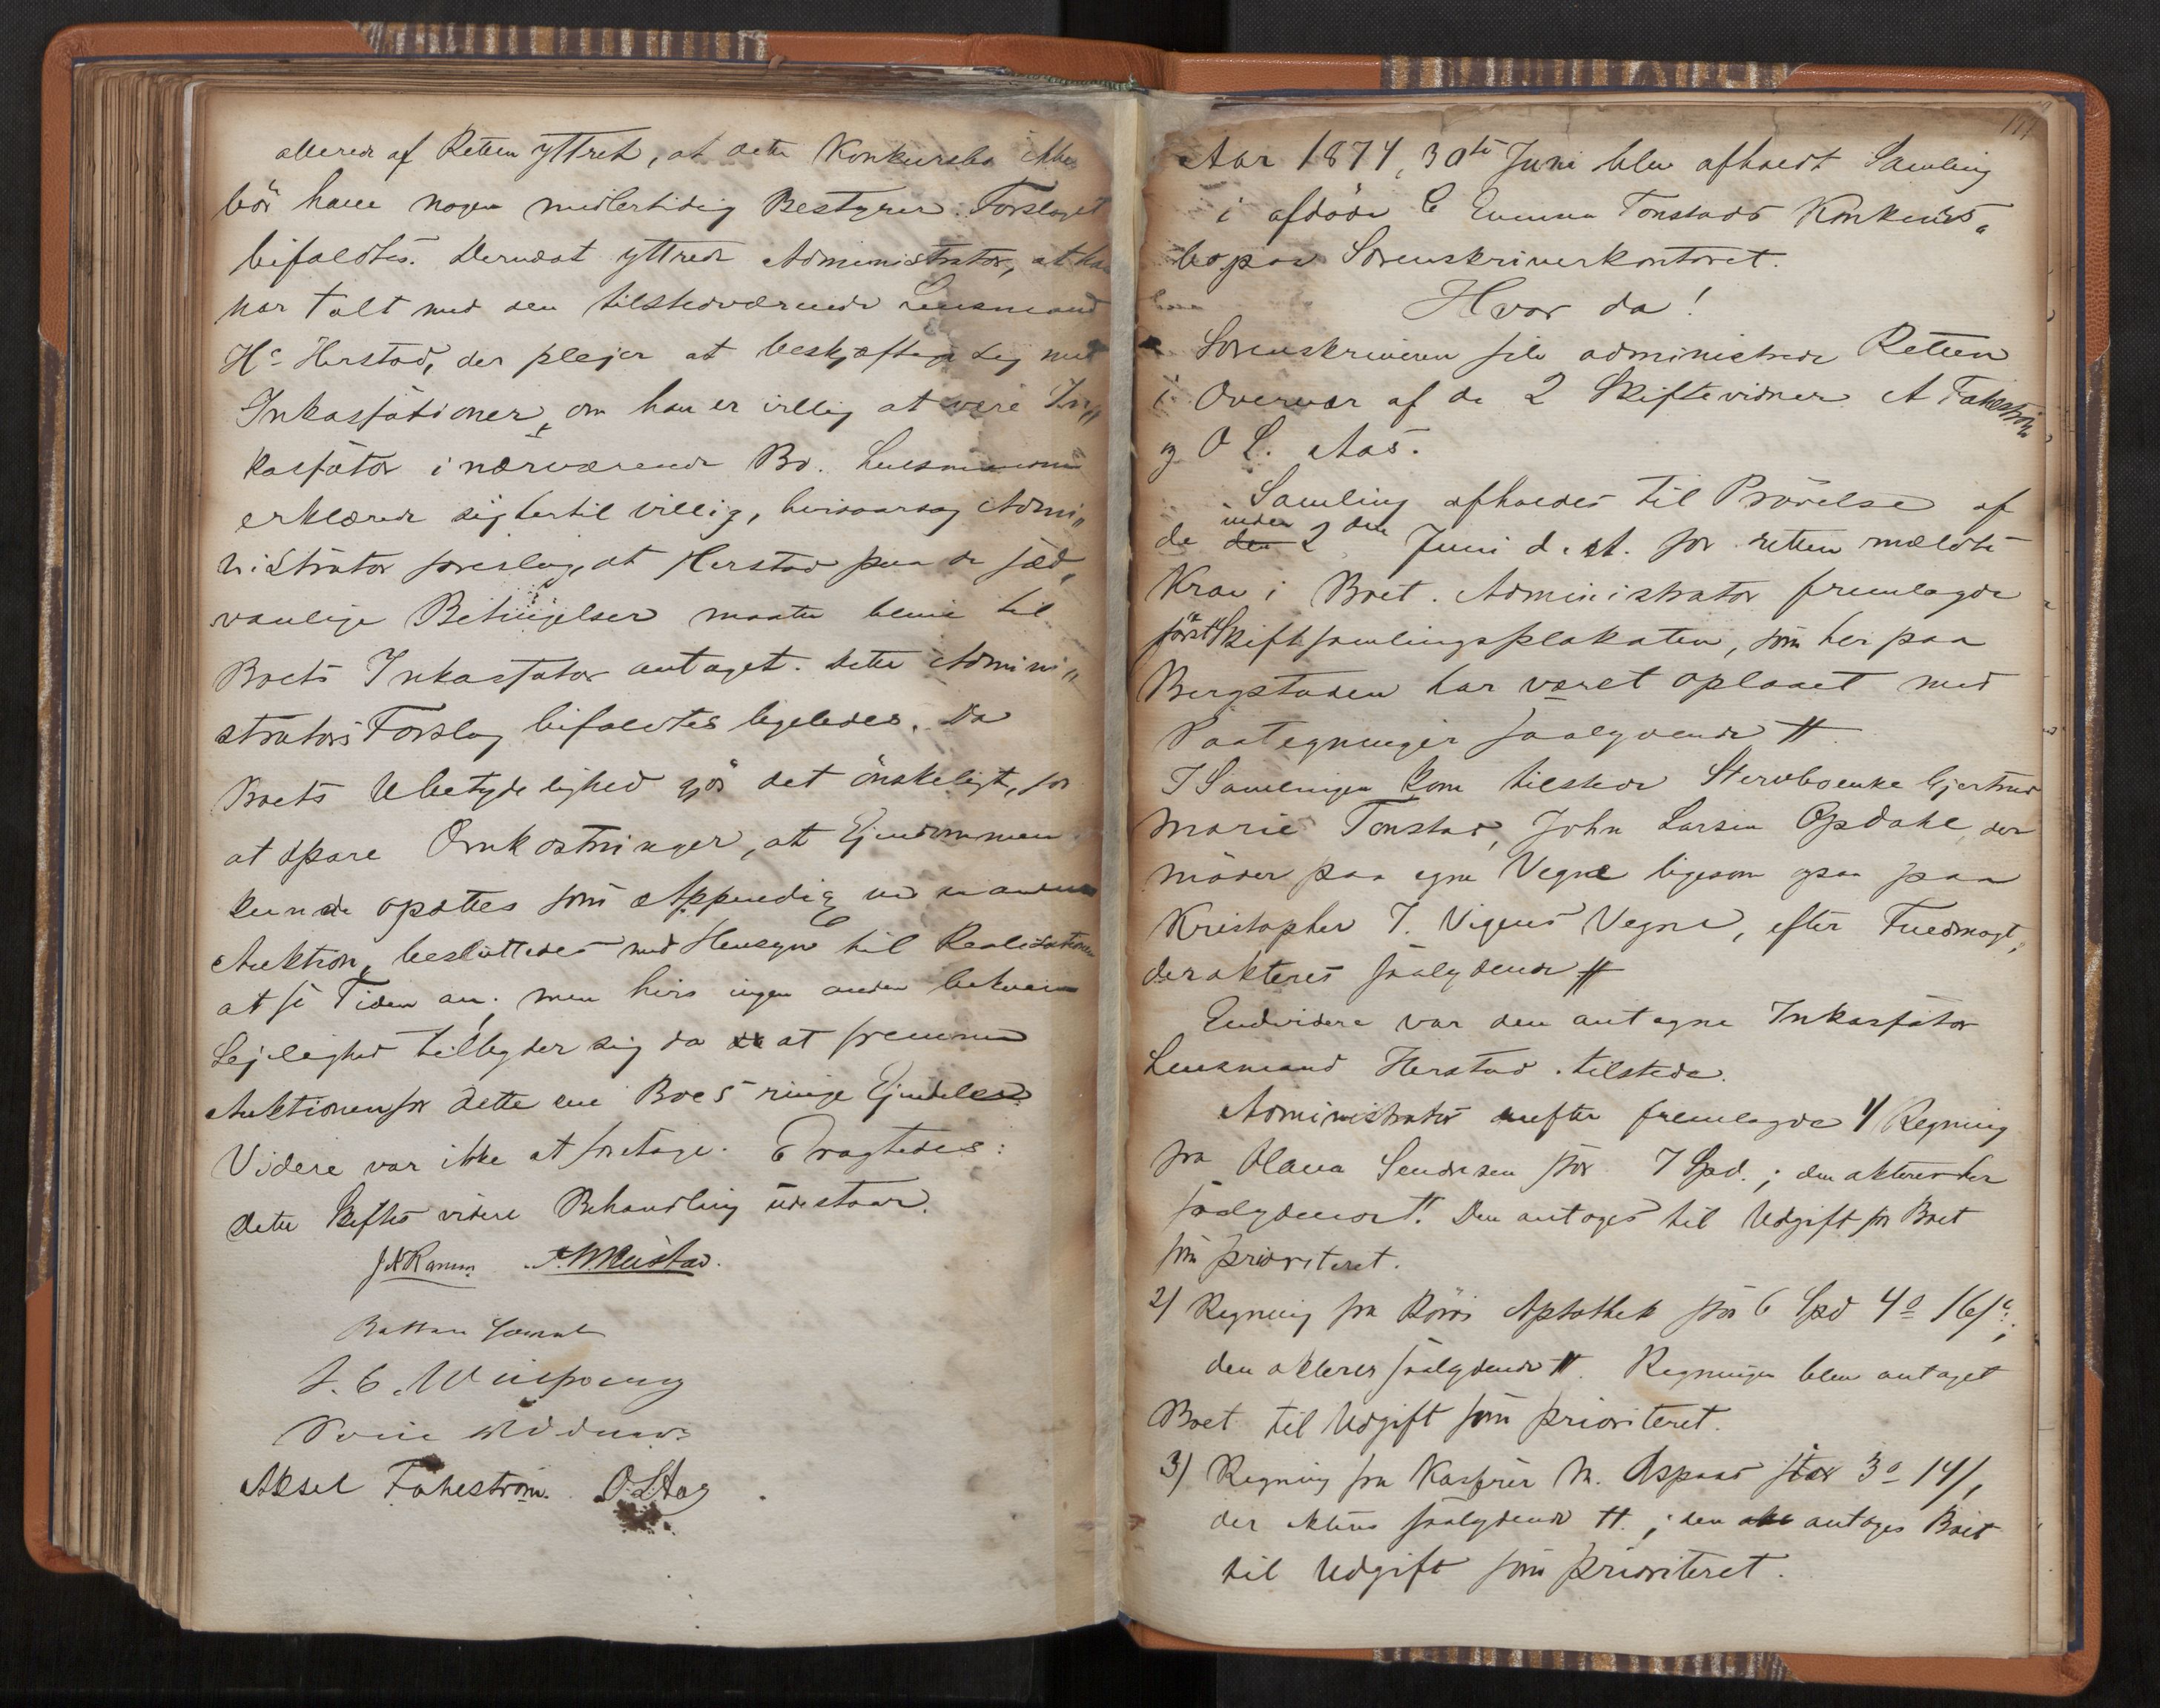 allerede af Retten yttret, at dette Konkursbo ikke
bör have nogen midlertidig Bestyrer. Forslaget
bifaldtes. Dernæst yttrede Administrator, at han
har talt med den tilstedeværende Lensmand
Hr. Herstad, der plejer at beskjæftige sig med
Inkassationer, om han er villig at være In„
kassator i nærværende Bo. Lensmanden
erklærede sig hertil villig, hvisaarsag Admi„
nistrator foreslog, at Herstad paa de sæd„
vanlige Betingelser maatte blive til
Boets Inkassator antaget. Dette Admini„
strators Forslag bifaldtes ligeledes. Da
Boets Ubetydelighed gjör det önskeligt, for
at spare Omkostninger, at Ejendommen
kunde opsættes som Appendix ved en anden
Auktion, besluttedes med Hensyn til Realisationen
at se Tiden an; men hvis ingen anden bekvem
Lejlighed tilbyder sig da at fremme
Auktionen for dette ene Boes ringe Ejendele.
Videre var ikke at foretage. Eragtedes:
Dette Skiftes videre Behandling udestaar.
J N Ramm A. M. Mustad.
J. C. Winsponng
Aksel Fahestrøm. O. L. Aas
Aar 1874, 30te Juni blev afholdt Samling
i afdöde E Evensen Tonstads Konkurs„
bo paa Sorenskriverkontoret.
Hvor da!
Sorenskriveren selv administrede Retten
i Overvær af de 2 Skiftevidner A Faheström
og O L. Aas.
Samling afholdes til Prövelse af
de inden 2den Juni d. A. for retten meldte
Krav i Boet. Administrator fremlagde
först Skiftesamlingsplakaten, som her paa
Bergstaden har været oplæst med
Paategninger saalydende ₶
I Samlingen kom tilstede Stervboenke Gjertrud
Marie Tonstad, John Larsen Opdahl, der
möder paa egne Vegne ligesom ogsaa paa
Kristopher J. Vigens Vegne, efter Fuldmagt,
der akteres saalydende ₶
Endvidere var den antagne Inkassator
Lensmand Herstad tilstede.
Administrator derefter fremlagde 1/ Regning
fra Olava Sendresen stor 7 Spd.; den akteres her
saalydende ₶. Den antoges til Udgift for Boet
som prioriteret.
2/ Regning fra Röros Apothek stor 6 Spd 4 o 16 s;
den akteres saalydende ₶. Regningen blev antaget
Boet til Udgift som prioriteret.
3/ Regning fra Kasserer M. Aspaas stor 3 o 14 s,
der akteres saalydende ₶.; den antoges Boet
til Udgift som prioriteret.